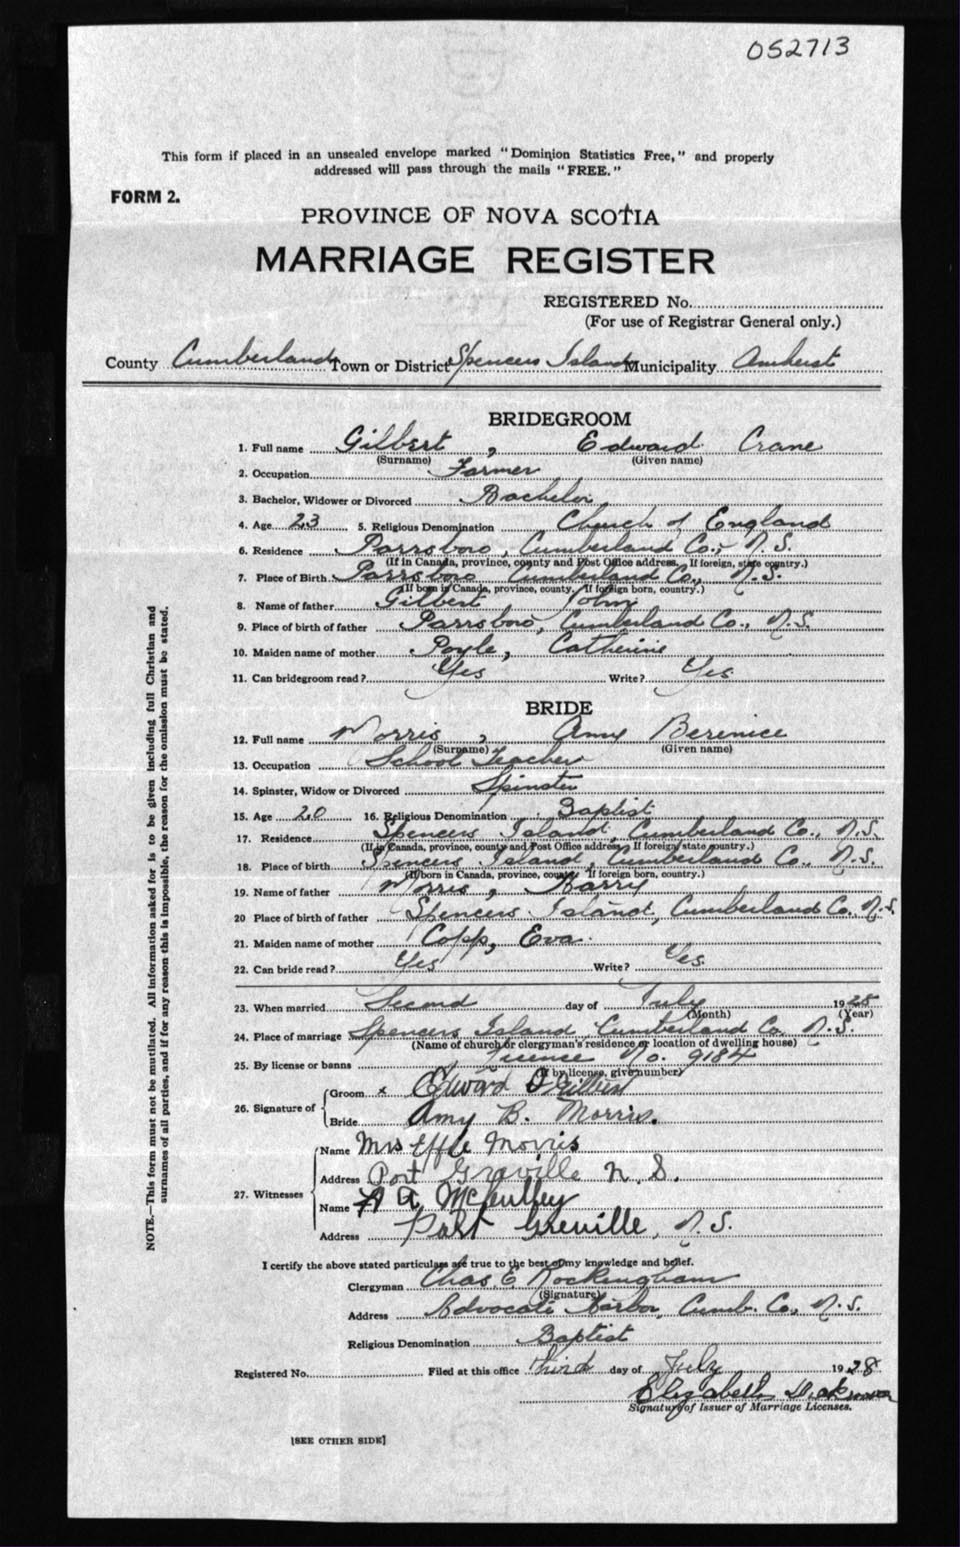 052713
This form if placed in an unsealed envelope marked "Dominion Statistics Free," and properly
addressed will pass through the mails "FREE."
FORM 2.
PROVINCE OF NOVA SCOTIA
MARRIAGE REGISTER
REGISTERED No.
(For use of Registrar General only.)
County Cumberland Town or District Spencers Island Municipality Amherst
BRIDEGROOM
1. Full name Gilbert, Edward Crane
(Surname) (Given name)
2. Occupation Farmer
3. Bachelor, Widower or Divorced Bachelor
4. Age 23 5. Religious Denomination Church of England
6. Residence Parrsboro, Cumberland Co., N.S.
(If in Canada, province, county and Post Office address. If foreign, state country.)
7. Place of Birth Parrsboro Cumberland Co., N.S.
(If born in Canada, province, county. If foreign born, country.)
8. Name of father Gilbert John
9. Place of birth of father Parrsboro, Cumberland Co., N.S.
10. Maiden name of mother Catherine
11. Can bridegroom read? Yes Write? Yes
BRIDE
12. Full name Morris, Amy Berenice
(Surname) (Given name)
13. Occupation School Teacher
14. Spinster, Widow or Divorced Spinster
15. Age 20 16. Religious Denomination Baptist
17. Residence Spencers Island, Cumberland Co., N.S.
(If in Canada, province, county and Post Office address If foreign state country.)
18. Place of birth Spencers Island, Cumberland Co., N.S.
(If born in Canada, province, county If foreign born, country.)
19. Name of father Morris, Harry
20 Place of birth of father Spencers Island, Cumberland Co. N.S.
21. Maiden name of mother Copp, Eva.
22. Can bride read? Yes Write? Yes
23. When married Second day of July 1928
(Month) (Year)
24. Place of marriage Spencers Island Cumberland Co. N.S.
(Name of church or clergyman's residence or location of dwelling house)
25. By license or banns License No. 9184
(If by license, give number)
26. Signature of Groom x Edward Gilbert
Bride Amy B. Morris.
27. Witnesses
Name Mrs Effie Morris
Address Port Graville N.S.
Name A
Address Port Greville, N.S.
I certify the above stated particulars are true to the best of my knowledge and belief.
Clergyman Chas. E Rockingham
(Signature)
Address Advocate Harbor, Cumb. Co., N.S.
Religious Denomination Baptist
Registered No. Filed at this office Third day of July 1928
Elizabeth
Signature of Issuer of Marriage Licenses.
[SEE OTHER SIDE]
NOTE.—This form must not be mutilated. All information asked for is to be given including full Christian and
surnames of all parties, and if for any reason this is impossible, the reason for the omission must be stated.